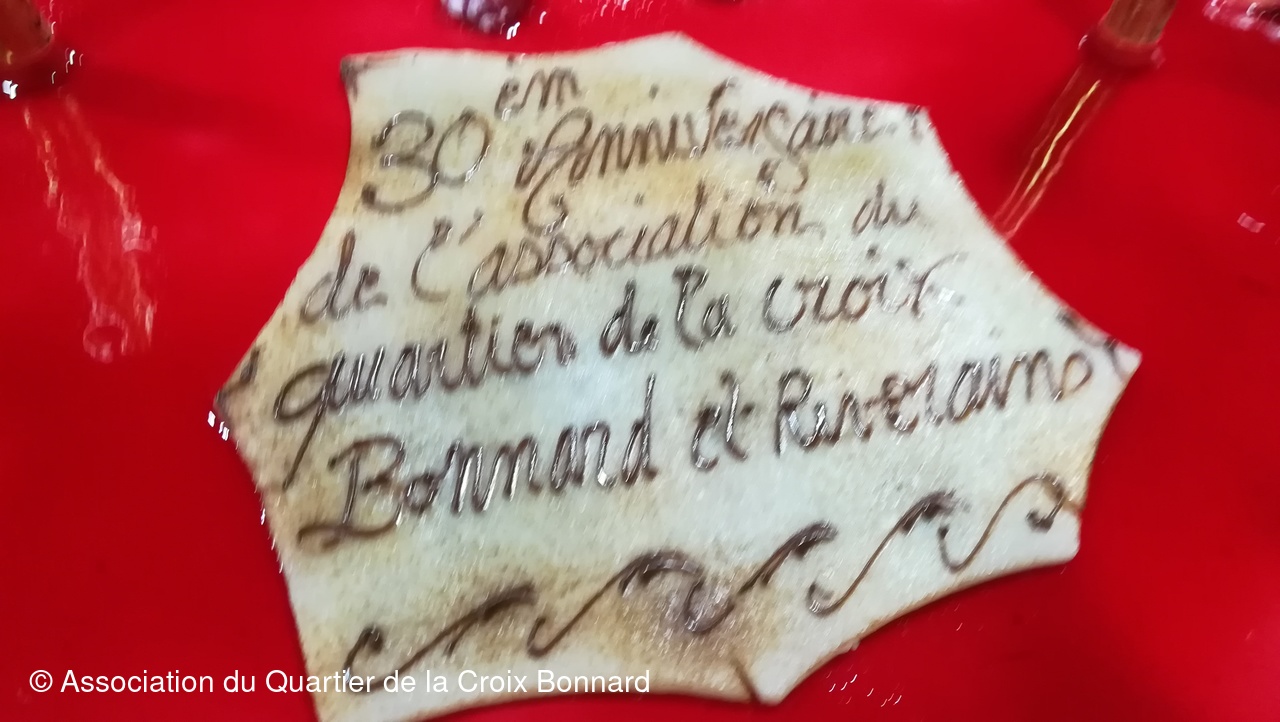 30èm Anniversaire
de l'association du
quartier de la croix
Bonnard et Riverains
© Association du Quartier de la Croix Bonnard